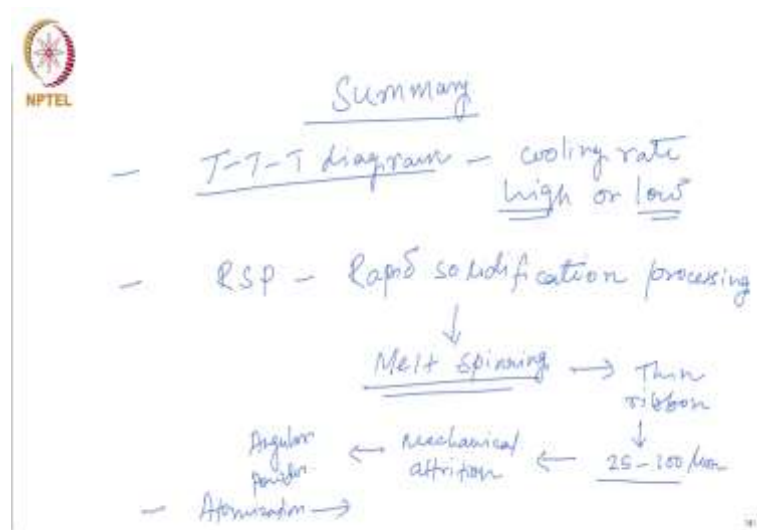 NPTEL
Summary
- T-T-T diagram - cooling rate
high or low
- RSP - Rapid solidification processing
↓
Melt spinning → Thin
ribbon
↓
Angular powder ← Mechanical attrition ← 25-100 μm
- Atomization →